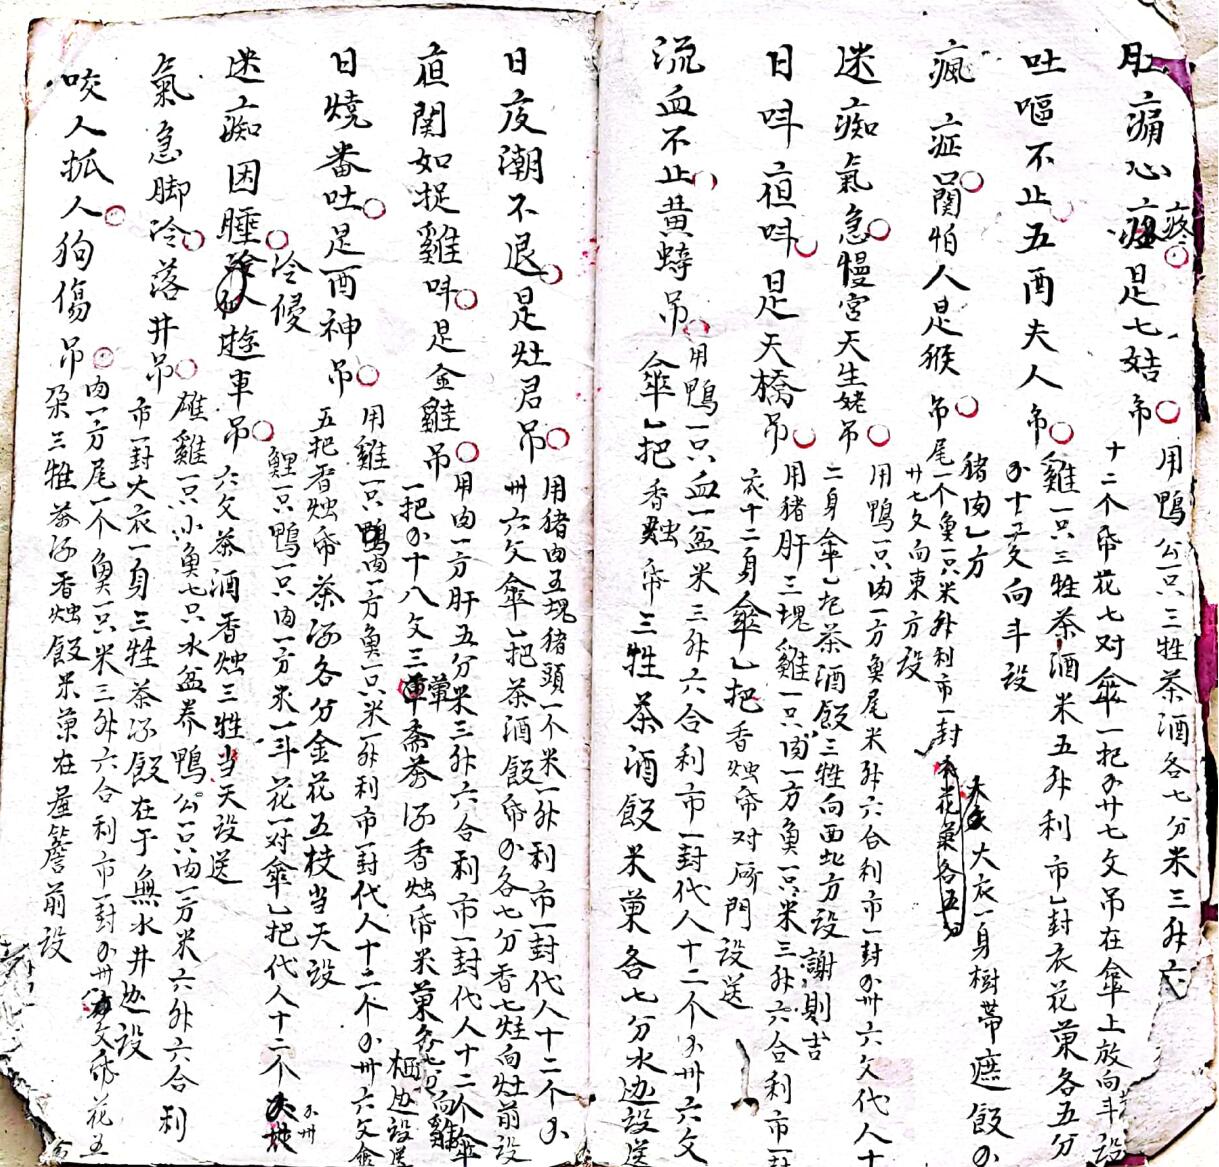 肚痛心疼是七姑吊
用鴨公一只三牲茶酒各七分米三升六
十二个帋花七对傘一把 廿七文吊在傘上放向斗設
吐嘔不止五酉夫人吊
雞一只三牲茶酒米五升利市乚封衣花菓各五分
十五文向斗設
瘋症關怕人是猴吊
猪肉乚方 大衣一身樹蒂庶飯
尾一个魚一只米升利市一封
廿七文向東方設
迷痴氣急慢宮天生姥吊
用鴨一只肉一方魚尾米升六合利市一封 卅六文代人十
二身傘乚 茶酒飯三牲向西北方設謝則吉
日呌夜呌是天橋吊
用猪肝三塊雞一只肉一方魚一只米三升六合利市一封
衣十二身傘乚把香烛帋对 門設送
流血不止黄蜞吊
用鴨一只血一盆米三升六合利市一封代人十二个 卅六文
傘乚把香烛帋三牲茶酒飯米菓各七分水边設送
日夜潮不退是灶君吊
用猪肉五塊猪頭一个米一升利市一封代人十二个
卅六文傘乚把茶酒飯帋 各七分香七炷向灶前設
夜関如捉雞呌是金雞吊
用肉一方肝五分米三升六合利市一封代人十二个傘
一把 十八文三葷斋茶酒香烛帋米菓各七只向雞栖边設送
日燒番吐是酉神吊
用雞一只鴨肉一方魚一只米一升利市一封代人十二个 卅六文傘
五把香烛帋茶酒各分金花五枝当天設
迷痴因睡冷侵 車吊
鯉一只鴨一只肉一方米一斗花一对傘乚把代人十二个 卅
六文茶酒香烛三牲当天設送
氣急脚冷落井吊
雄雞一只小魚七只水盆养鴨公一只肉一方米六升六合利
市一封大衣一身三牲茶酒飯在于無水井边設
咬人抓人狗傷吊
肉一方尾一个魚一只米三升六合利市一封 卅六文帋花五
朵三牲茶酒香烛飯米菓在屋簷前設